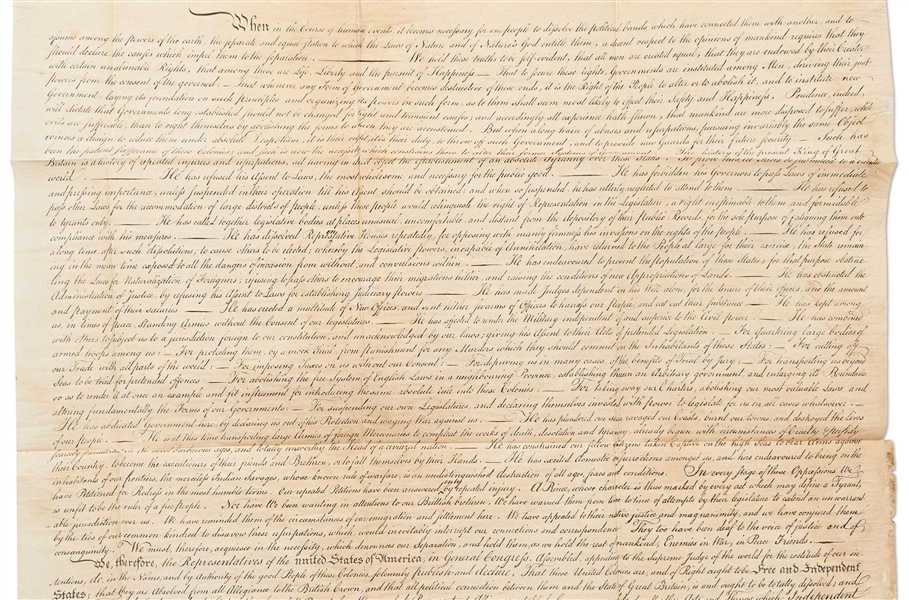 When in the Course of human events, it becomes necessary for one people to dissolve the political bands which have connected them with another, and to
assume among the powers of the earth, the separate and equal station to which the Laws of Nature and of Nature's God entitle them, a decent respect to the opinions of mankind requires that they
should declare the causes which impel them to the separation. — We hold these truths to be self-evident, that all men are created equal, that they are endowed by their Creator
with certain unalienable Rights, that among these are Life, Liberty and the pursuit of Happiness — That to secure these rights, Governments are instituted among Men, deriving their just
powers from the consent of the governed, — That whenever any Form of Government becomes destructive of these ends, it is the Right of the People to alter or to abolish it, and to institute new
Government, laying its foundation on such principles and organizing its powers in such form, as to them shall seem most likely to effect their Safety and Happiness. Prudence, indeed,
will dictate that Governments long established should not be changed for light and transient causes; and accordingly all experience hath shewn, that mankind are more disposed to suffer, while
evils are sufferable, than to right themselves by abolishing the forms to which they are accustomed. But when a long train of abuses and usurpations, pursuing invariably the same Object
evinces a design to reduce them under absolute Despotism, it is their right, it is their duty, to throw off such Government, and to provide new Guards for their future security. — Such has
been the patient sufferance of these Colonies; and such is now the necessity which constrains them to alter their former Systems of Government. The history of the present King of Great
Britain is a history of repeated injuries and usurpations, all having in direct object the establishment of an absolute Tyranny over these States. To prove this, let Facts be submitted to a candid
world. — He has refused his Assent to Laws, the most wholesome and necessary for the public good. — He has forbidden his Governors to pass Laws of immediate
and pressing importance, unless suspended in their operation till his Assent should be obtained; and when so suspended, he has utterly neglected to attend to them. — He has refused to
pass other Laws for the accommodation of large districts of people, unless those people would relinquish the right of Representation in the Legislature, a right inestimable to them and formidable
to tyrants only. — He has called together legislative bodies at places unusual, uncomfortable, and distant from the depository of their Public Records, for the sole purpose of fatiguing them into
compliance with his measures. — He has dissolved Representative Houses repeatedly, for opposing with manly firmness his invasions on the rights of the people. — He has refused for
a long time, after such dissolutions, to cause others to be elected; whereby the Legislative powers, incapable of Annihilation, have returned to the People at large for their exercise; the State remain
ing in the mean time exposed to all the dangers of invasion from without, and convulsions within. — He has endeavoured to prevent the population of these States; for that purpose obstruc
ting the Laws for Naturalization of Foreigners; refusing to pass others to encourage their migrations hither, and raising the conditions of new Appropriations of Lands. — He has obstructed the
Administration of Justice, by refusing his Assent to Laws for establishing Judiciary powers — He has made Judges dependent on his Will alone, for the tenure of their offices, and the amount
and payment of their salaries — He has erected a multitude of New Offices, and sent hither swarms of Officers to harrass our people, and eat out their substance — He has kept among
us, in times of peace, Standing Armies without the Consent of our legislatures — He has affected to render the Military independent of and superior to the Civil power. — He has combined
with others to subject us to a jurisdiction foreign to our constitution, and unacknowledged by our laws; giving his Assent to their Acts of pretended Legislation: — For Quartering large bodies of
armed troops among us: — For protecting them, by a mock Trial, from punishment for any Murders which they should commit on the Inhabitants of these States: — For cutting off
our Trade with all parts of the world: — For imposing Taxes on us without our Consent: — For depriving us in many cases, of the benefits of Trial by Jury; — For transporting us beyond
Seas to be tried for pretended offences — For abolishing the free System of English Laws in a neighbouring Province, establishing therein an Arbitrary government, and enlarging its Boundaries
so as to render it at once an example and fit instrument for introducing the same absolute rule into these Colonies: — For taking away our Charters, abolishing our most valuable Laws, and
altering fundamentally the Forms of our Governments: — For suspending our own Legislatures, and declaring themselves invested with power to legislate for us in all cases whatsoever. —
He has abdicated Government here, by declaring us out of his Protection and waging War against us. — He has plundered our seas, ravaged our Coasts, burnt our towns, and destroyed the lives
of our people. — He is at this time transporting large Armies of foreign Mercenaries to compleat the works of death, desolation and tyranny, already begun with circumstances of Cruelty & perfidy
scarcely paralleled in the most barbarous ages, and totally unworthy the Head of a civilized nation. — He has constrained our fellow Citizens taken Captive on the high Seas to bear Arms against
their Country, to become the executioners of their friends and Brethren, or to fall themselves by their Hands. — He has excited domestic insurrections amongst us, and has endeavoured to bring on the
inhabitants of our frontiers, the merciless Indian Savages, whose known rule of warfare, is an undistinguished destruction of all ages, sexes and conditions. In every stage of these Oppressions We
have Petitioned for Redress in the most humble terms: Our repeated Petitions have been answered only by repeated injury. A Prince, whose character is thus marked by every act which may define a Tyrant,
is unfit to be the ruler of a free people. Nor have We been wanting in attentions to our Brittish brethren. We have warned them from time to time of attempts by their legislature to extend an unwarrant
able jurisdiction over us. We have reminded them of the circumstances of our emigration and settlement here. We have appealed to their native justice and magnanimity, and we have conjured them
by the ties of our common kindred to disavow these usurpations, which, would inevitably interrupt our connections and correspondence. They too have been deaf to the voice of justice and of
consanguinity. We must, therefore, acquiesce in the necessity, which denounces our Separation, and hold them, as we hold the rest of mankind, Enemies in War, in Peace Friends. —
We, therefore, the Representatives of the united States of America, in General Congress, Assembled, appealing to the Supreme Judge of the world for the rectitude of our in
tentions, do, in the Name, and by authority of the good People of these Colonies, solemnly publish and declare, That these United Colonies are, and of Right ought to be Free and Independent
States; that they are Absolved from all Allegiance to the British Crown, and that all political connection between them and the State of Great Britain, is and ought to be totally dissolved; and
Independent